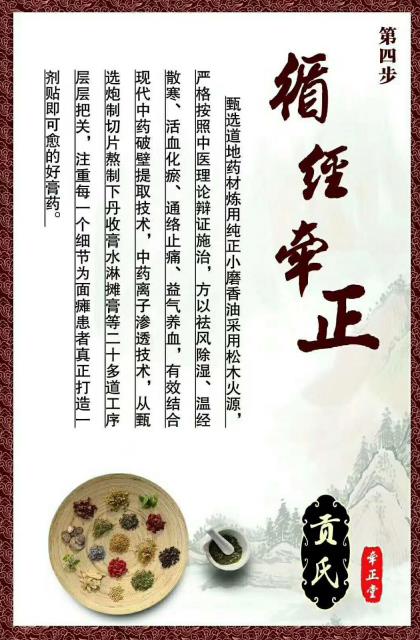 第四步
循经牵正
甄选道地药材炼用纯正小磨香油采用松木火源，
严格按照中医理论辩证施治，方以祛风除湿、温经
散寒、活血化瘀、通络止痛、益气养血，有效结合
现代中药破壁提取技术，中药离子渗透技术，从甄
选炮制切片熬制下丹收膏水淋摊膏等二十多道工序
层层把关，注重每一个细节为面瘫患者真正打造一
剂贴即可愈的好膏药。
贡氏
牵正堂